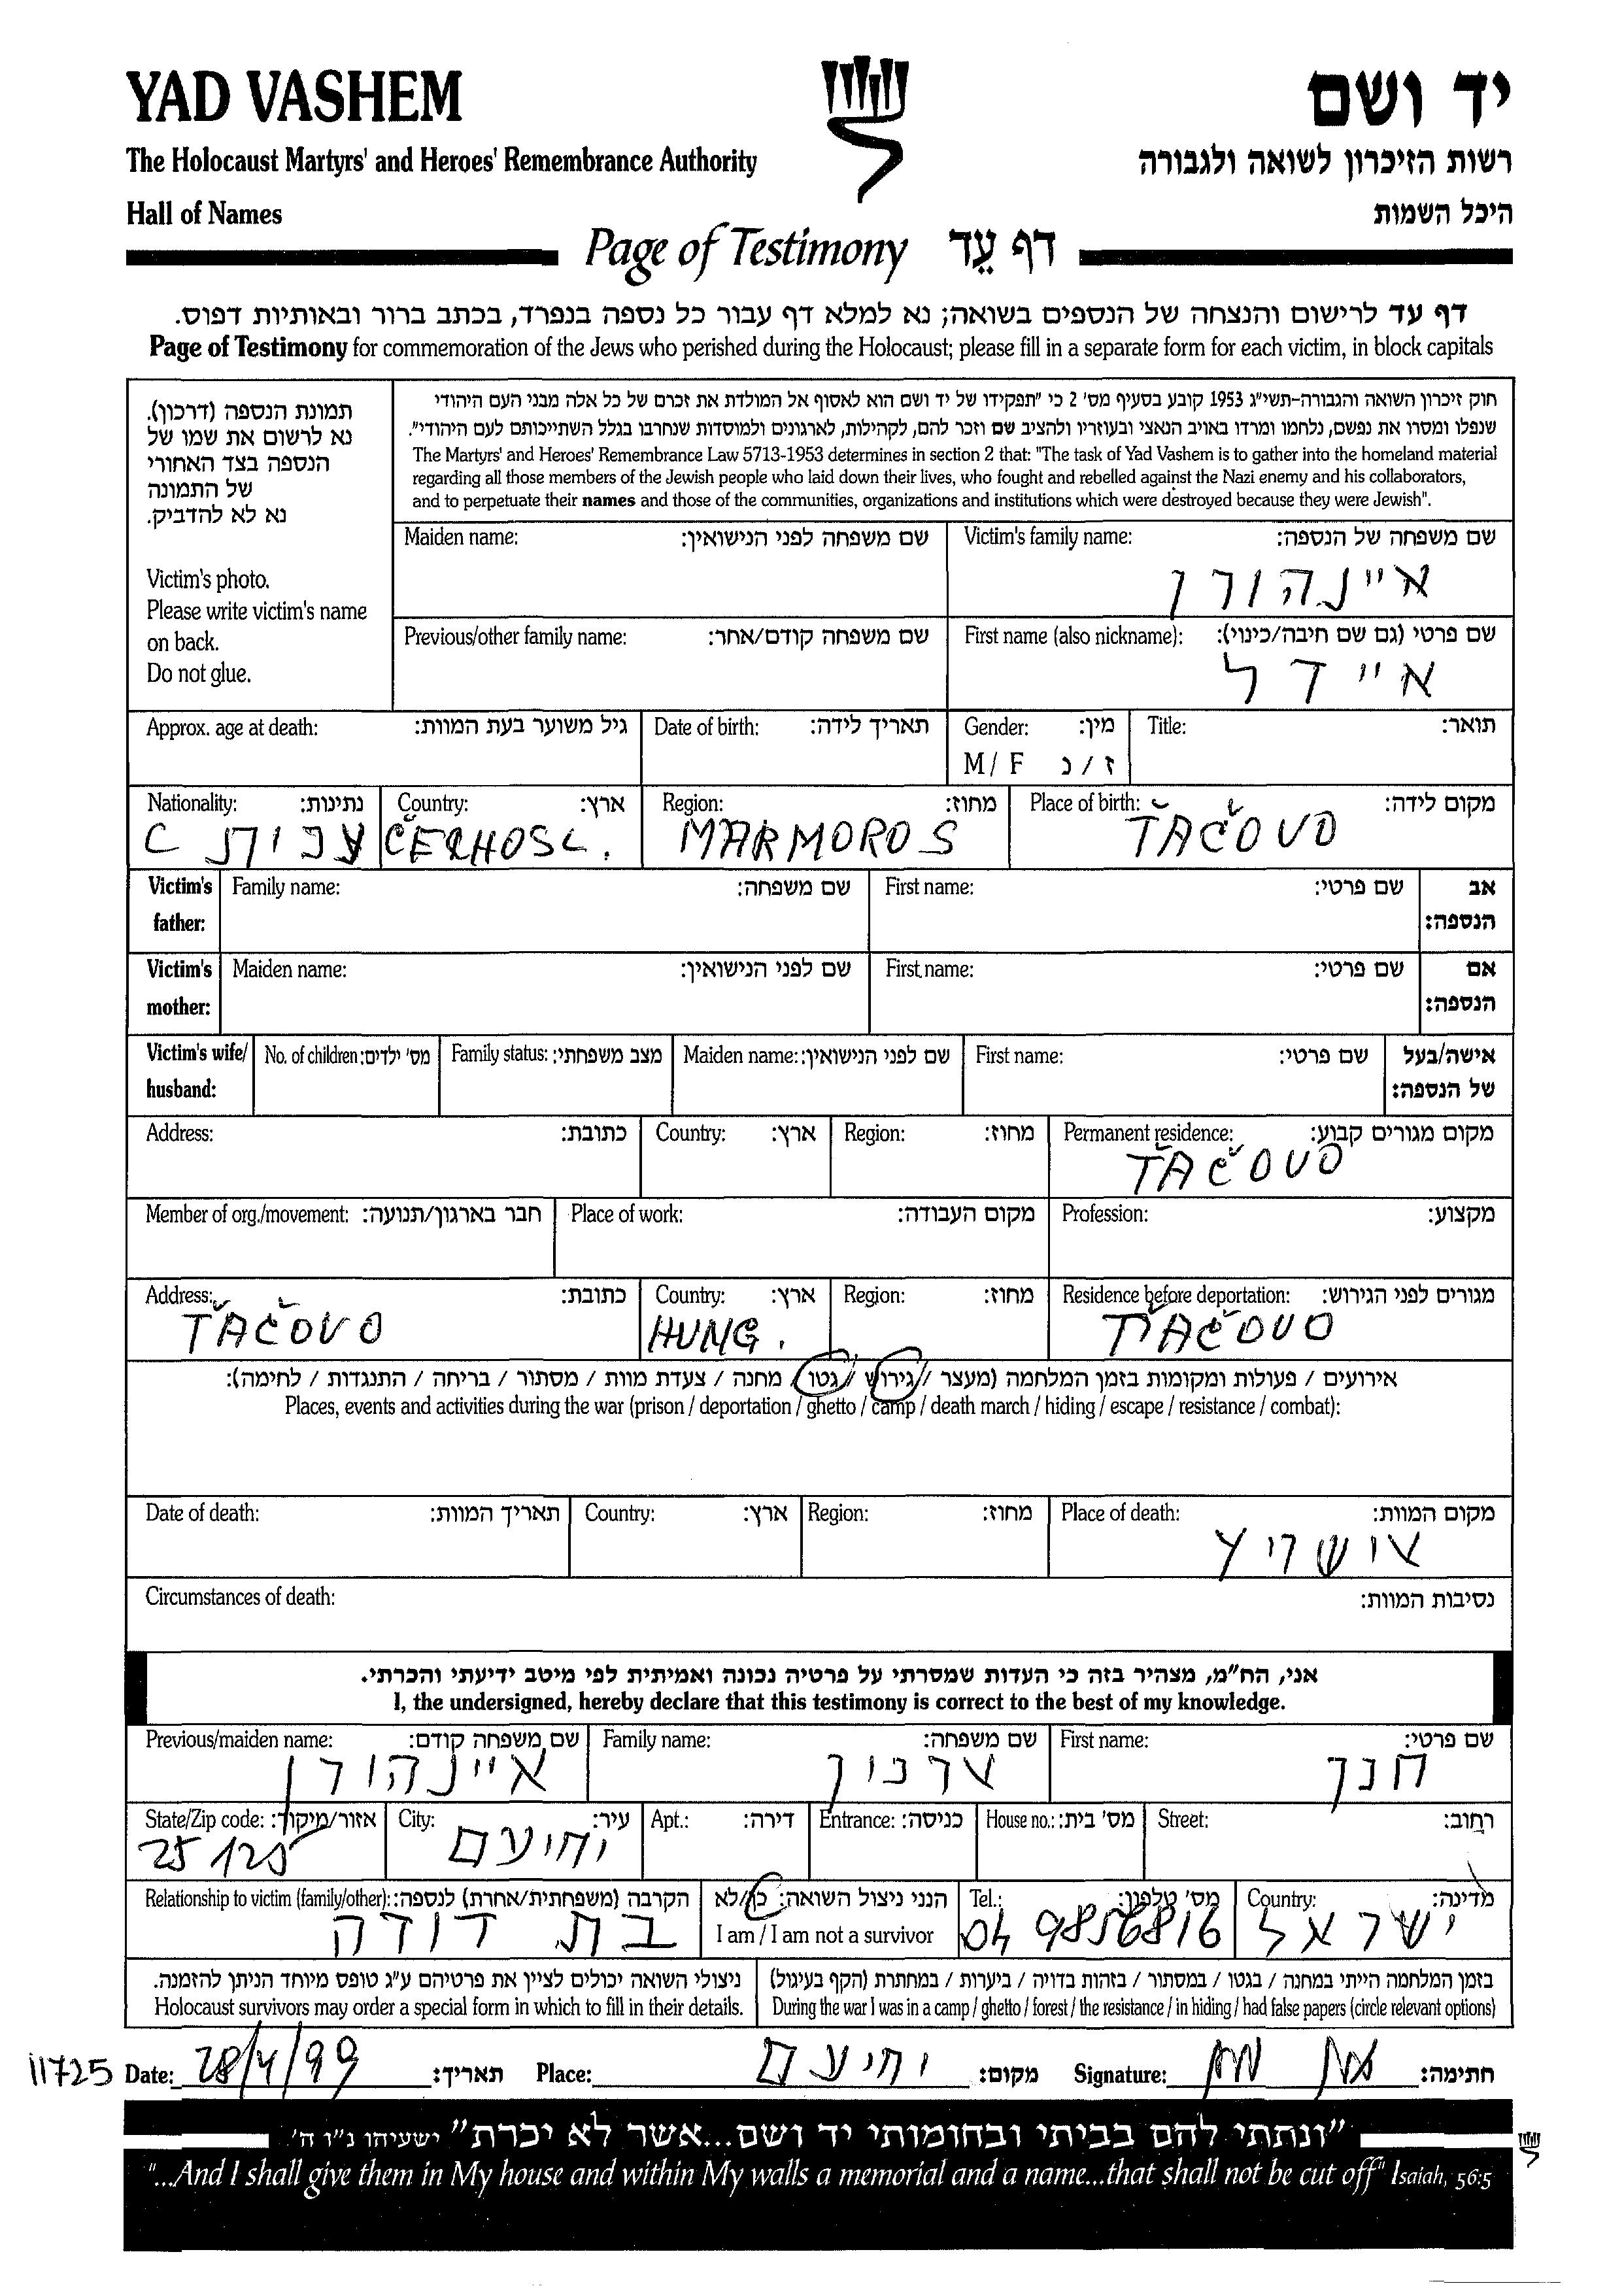 YAD VASHEM יד ושם
The Holocaust Martyrs' and Heroes' Remembrance Authority רשות הזיכרון לשואה ולגבורה
Hall of Names היכל השמות
Page of Testimony דף עֵד
דף עד לרישום והנצחה של הנספים בשואה; נא למלא דף עבור כל נספה בנפרד, בכתב ברור ובאותיות דפוס.
Page of Testimony for commemoration of the Jews who perished during the Holocaust; please fill in a separate form for each victim, in block capitals
תמונת הנספה (דרכון).
נא לרשום את שמו של
הנספה בצד האחורי
של התמונה
נא לא להדביק.
Victim's photo.
Please write victim's name
on back.
Do not glue.
חוק זיכרון השואה והגבורה-תשי"ג 1953 קובע בסעיף מס' 2 כי "תפקידו של יד ושם הוא לאסוף אל המולדת את זכרם של כל אלה מבני העם היהודי
שנפלו ומסרו את נפשם, נלחמו ומרדו באויב הנאצי ובעוזריו ולהציב שם וזכר להם, לקהילות, לארגונים ולמוסדות שנחרבו בגלל השתייכותם לעם היהודי".
The Martyrs' and Heroes' Remembrance Law 5713-1953 determines in section 2 that: "The task of Yad Vashem is to gather into the homeland material
regarding all those members of the Jewish people who laid down their lives, who fought and rebelled against the Nazi enemy and his collaborators,
and to perpetuate their names and those of the communities, organizations and institutions which were destroyed because they were Jewish".
Maiden name: שם משפחה לפני הנישואין: Victim's family name: שם משפחה של הנספה:
איינהורן
Previous/other family name: שם משפחה קודם/אחר: First name (also nickname): שם פרטי (גם שם חיבה/כינוי):
איידל
Approx. age at death: גיל משוער בעת המוות: Date of birth: תאריך לידה: Gender: מין: Title: תואר:
M / F ז / נ
Nationality: נתינות: Country: ארץ: Region: מחוז: Place of birth: מקום לידה:
ČEHOSL. MARMOROS TAČOVO
Victim's father: Family name: שם משפחה: First name: שם פרטי: אב הנספה:
Victim's mother: Maiden name: שם לפני הנישואין: First name: שם פרטי: אם הנספה:
Victim's wife/ husband: No. of children: מס' ילדים: Family status: מצב משפחתי: Maiden name: שם לפני הנישואין: First name: שם פרטי: אישה/בעל של הנספה:
Address: כתובת: Country: ארץ: Region: מחוז: Permanent residence: מקום מגורים קבוע:
TAČOVO
Member of org./movement: חבר בארגון/תנועה: Place of work: מקום העבודה: Profession: מקצוע:
Address: כתובת: Country: ארץ: Region: מחוז: Residence before deportation: מגורים לפני הגירוש:
TAČOVO HUNG. TAČOVO
אירועים / פעולות ומקומות בזמן המלחמה (מעצר / גירוש / גטו / מחנה / צעדת מוות / מסתור / בריחה / התנגדות / לחימה):
Places, events and activities during the war (prison / deportation / ghetto / camp / death march / hiding / escape / resistance / combat):
Date of death: תאריך המוות: Country: ארץ: Region: מחוז: Place of death: מקום המוות:
אושויץ
Circumstances of death: נסיבות המוות:
אני, הח"מ, מצהיר בזה כי העדות שמסרתי על פרטיה נכונה ואמיתית לפי מיטב ידיעתי והכרתי.
I, the undersigned, hereby declare that this testimony is correct to the best of my knowledge.
Previous/maiden name: שם משפחה קודם: Family name: שם משפחה: First name: שם פרטי:
איינהורן חנך
State/Zip code: אזור/מיקוד: City: עיר: Apt.: דירה: Entrance: כניסה: House no.: מס' בית: Street: רחוב:
25125 יחיעם
Relationship to victim (family/other): הקרבה (משפחתית/אחרת) לנספה: הנני ניצול השואה: כן/לא Tel.: מס' טלפון: Country: מדינה:
בת דודה I am / I am not a survivor 04 9856816 ישראל
ניצולי השואה יכולים לציין את פרטיהם ע"ג טופס מיוחד הניתן להזמנה. בזמן המלחמה הייתי במחנה / בגטו / במסתור / בזהות בדויה / ביערות / במחתרת (הקף בעיגול)
Holocaust survivors may order a special form in which to fill in their details. During the war I was in a camp / ghetto / forest / the resistance / in hiding / had false papers (circle relevant options)
11725 Date: 28/4/99 תאריך: Place: יחיעם מקום: Signature: חתימה:
"ונתתי להם בביתי ובחומותי יד ושם...אשר לא יכרת" ישעיהו נ"ו ה'
"...And I shall give them in My house and within My walls a memorial and a name...that shall not be cut off" Isaiah, 56:5